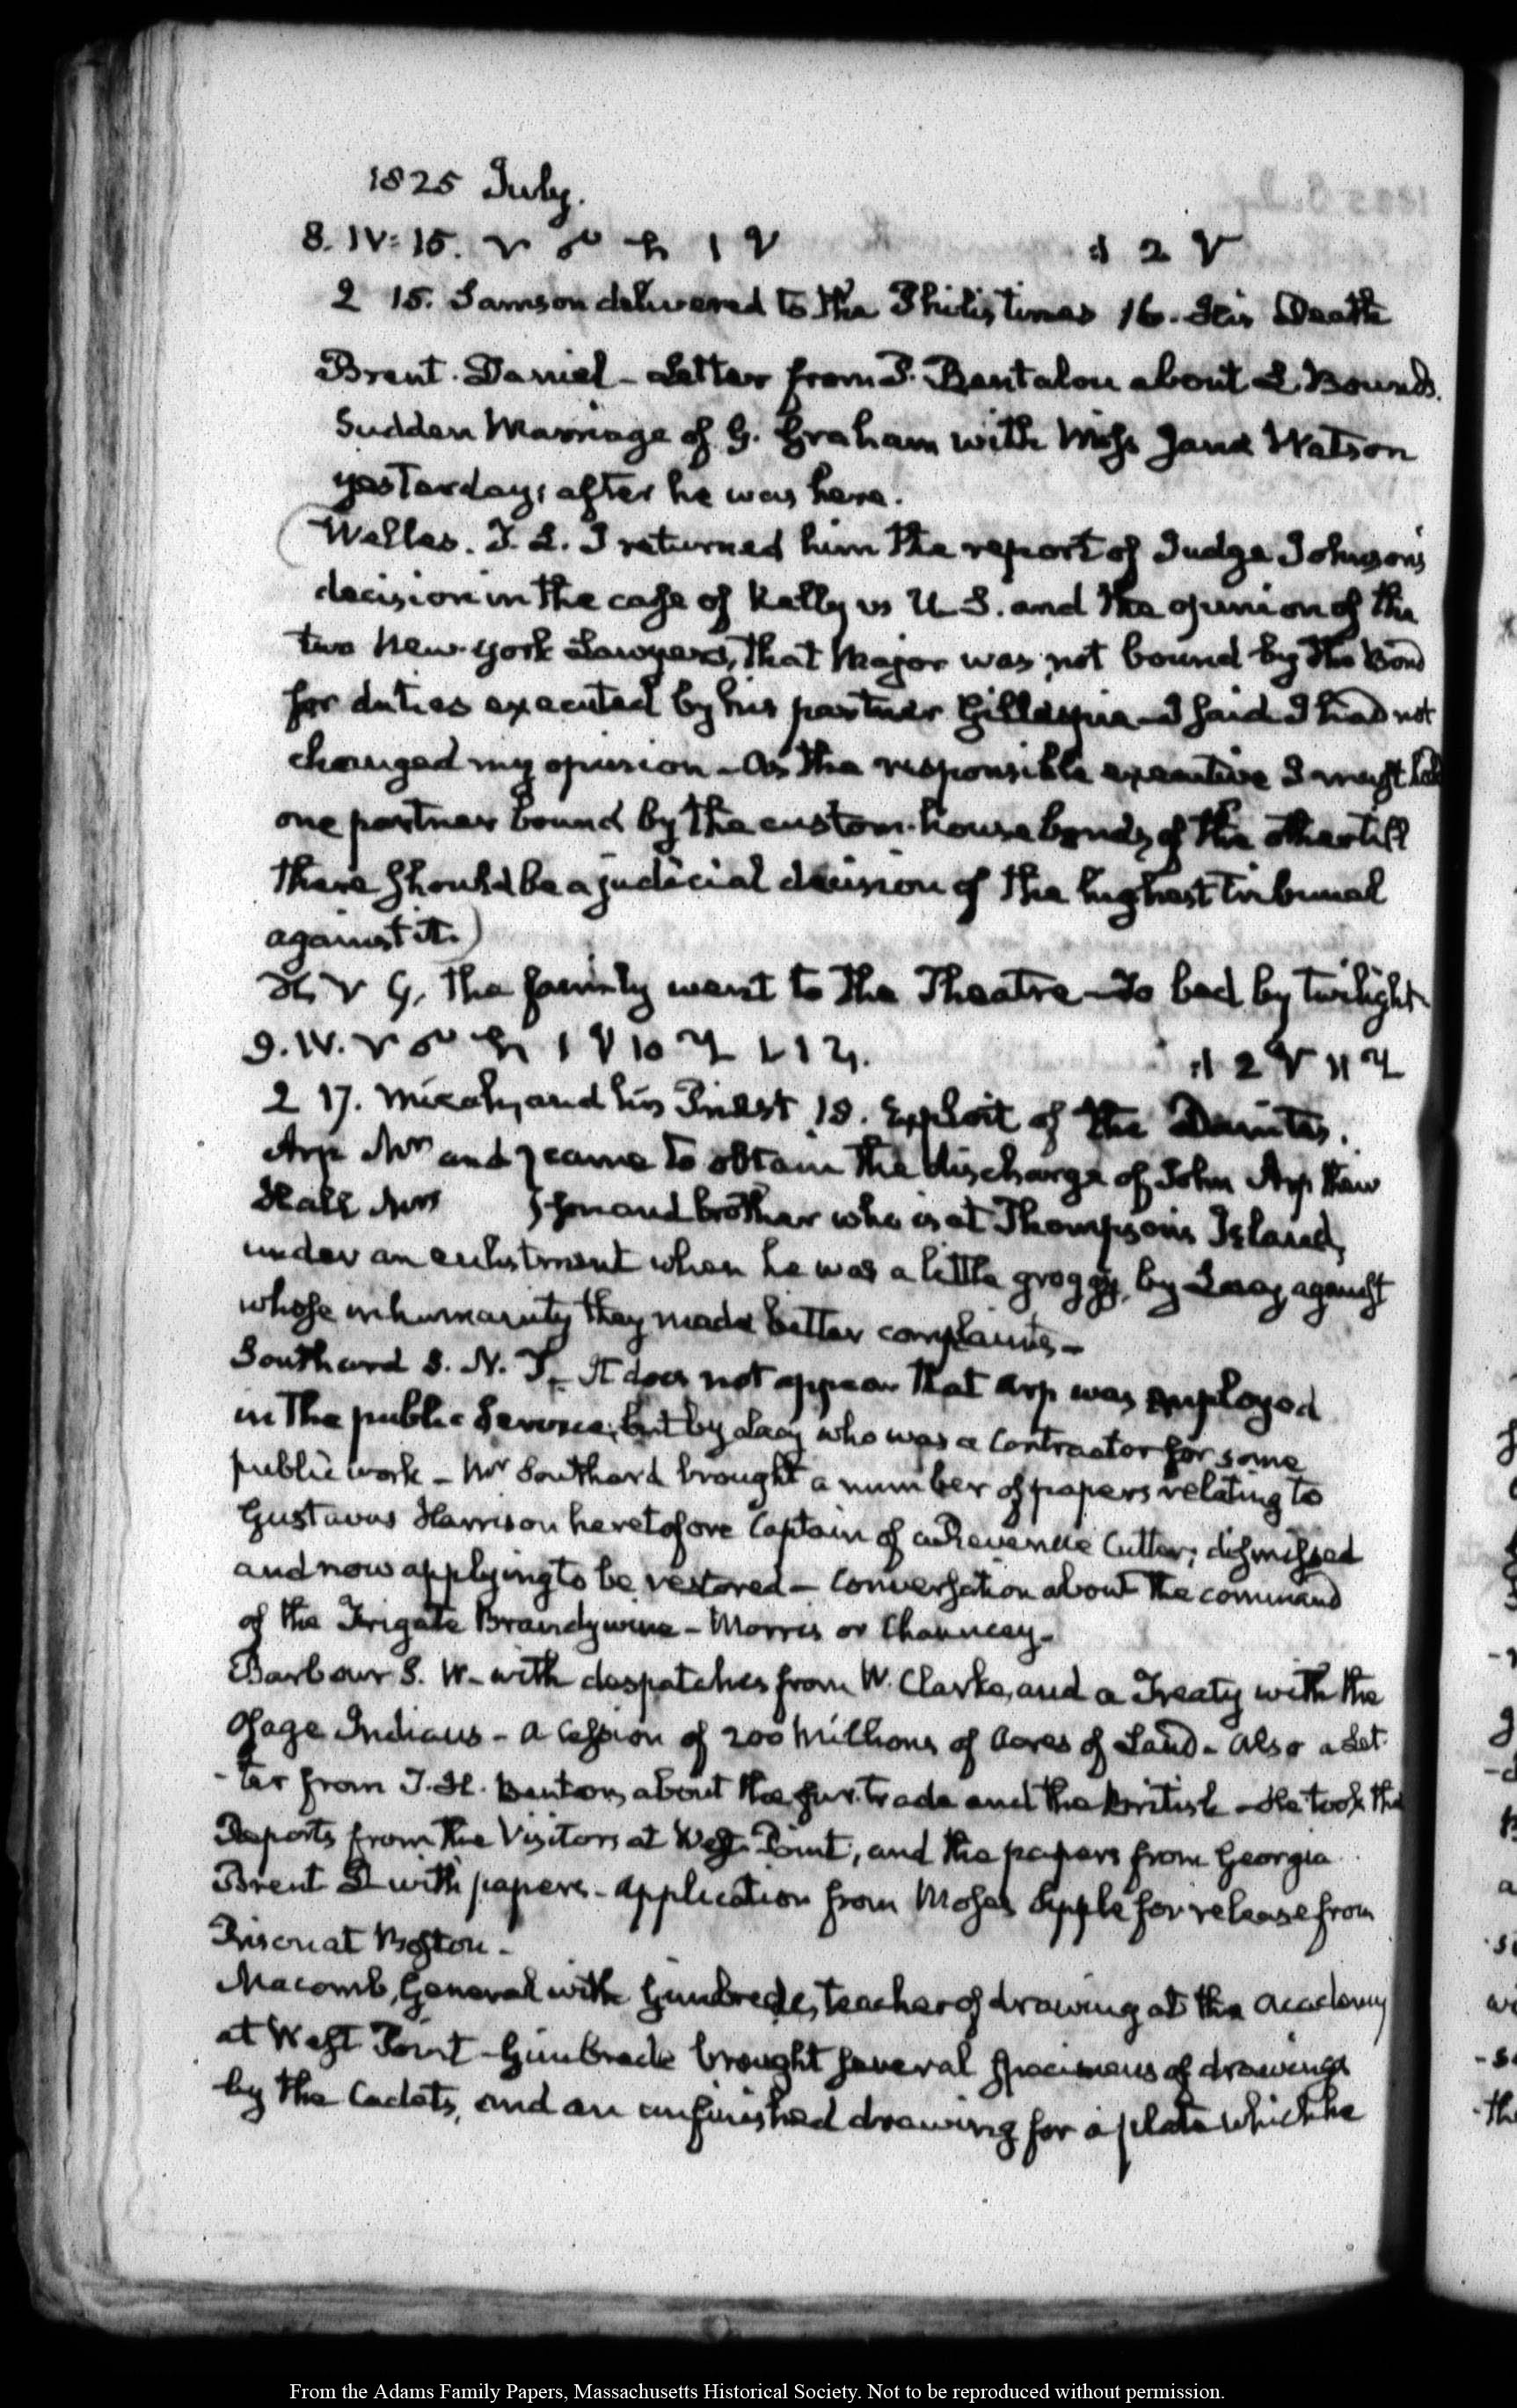 1825 July.
8. IV: 15.
2 15. Samson delivered to the Philistines 16. His Death
Brent. Daniel - Letter from P. Bentalou about L Bounds.
Sudden Marriage of G. Graham with Miss Jane Watson
yesterday, after he was here.
(Welles. I returned him the report of Judge Johnson's
decision in the case of Kelly vs U.S. and the opinion of the
two New-York Lawyers, that Major was not bound by the Bond
for duties executed by his partner Gillespie - I said I had not
changed my opinion - As the responsible executive I must hold
one partner bound by the custom-house bonds of the other till
there should be a judicial decision of the highest tribunal
against it.)
The family went to the Theatre - To bed by twilight
9. IV.
2 17. Micah, and his Priest. 18. Exploit of the Danites.
Arp Mrs and } came to obtain the discharge of John Arp their
Hall Mrs } son and brother who is at Thompson's Island,
under an enlistment when he was a little groggy, by Lacy, against
whose inhumanity they made bitter complaints -
Southard S. N. It does not appear that Arp was employed
in the public Service; but by Lacy who was a Contractor for some
public work - Mr Southard brought a number of papers relating to
Gustavus Harrison heretofore Captain of a Revenue Cutter; dismissed
and now applying to be restored - Conversation about the command
of the Frigate Brandywine - Morris or Chauncey -
Barbour S. W. - with despatches from W. Clarke, and a Treaty with the
Osage Indians - a Cession of 200 Millions of Acres of Land - Also a Let-
-ter from T. H. Benton, about the fur-trade and the British - He took the
Reports from the Visitors at West-Point, and the papers from Georgia
Brent D with papers - Application from Moses Sipple for release from
Prison at Boston -
Macomb, General with Gimbrede, teacher of drawing at the Academy
at West Point - Gimbrede brought several specimens of drawings
by the Cadets, and an unfinished drawing for a plate which he
From the Adams Family Papers, Massachusetts Historical Society. Not to be reproduced without permission.